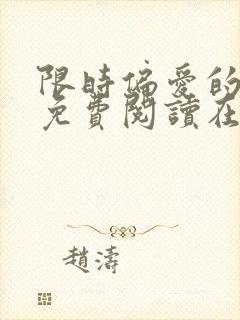 限時偏愛的
免費閱讀在
趙濤